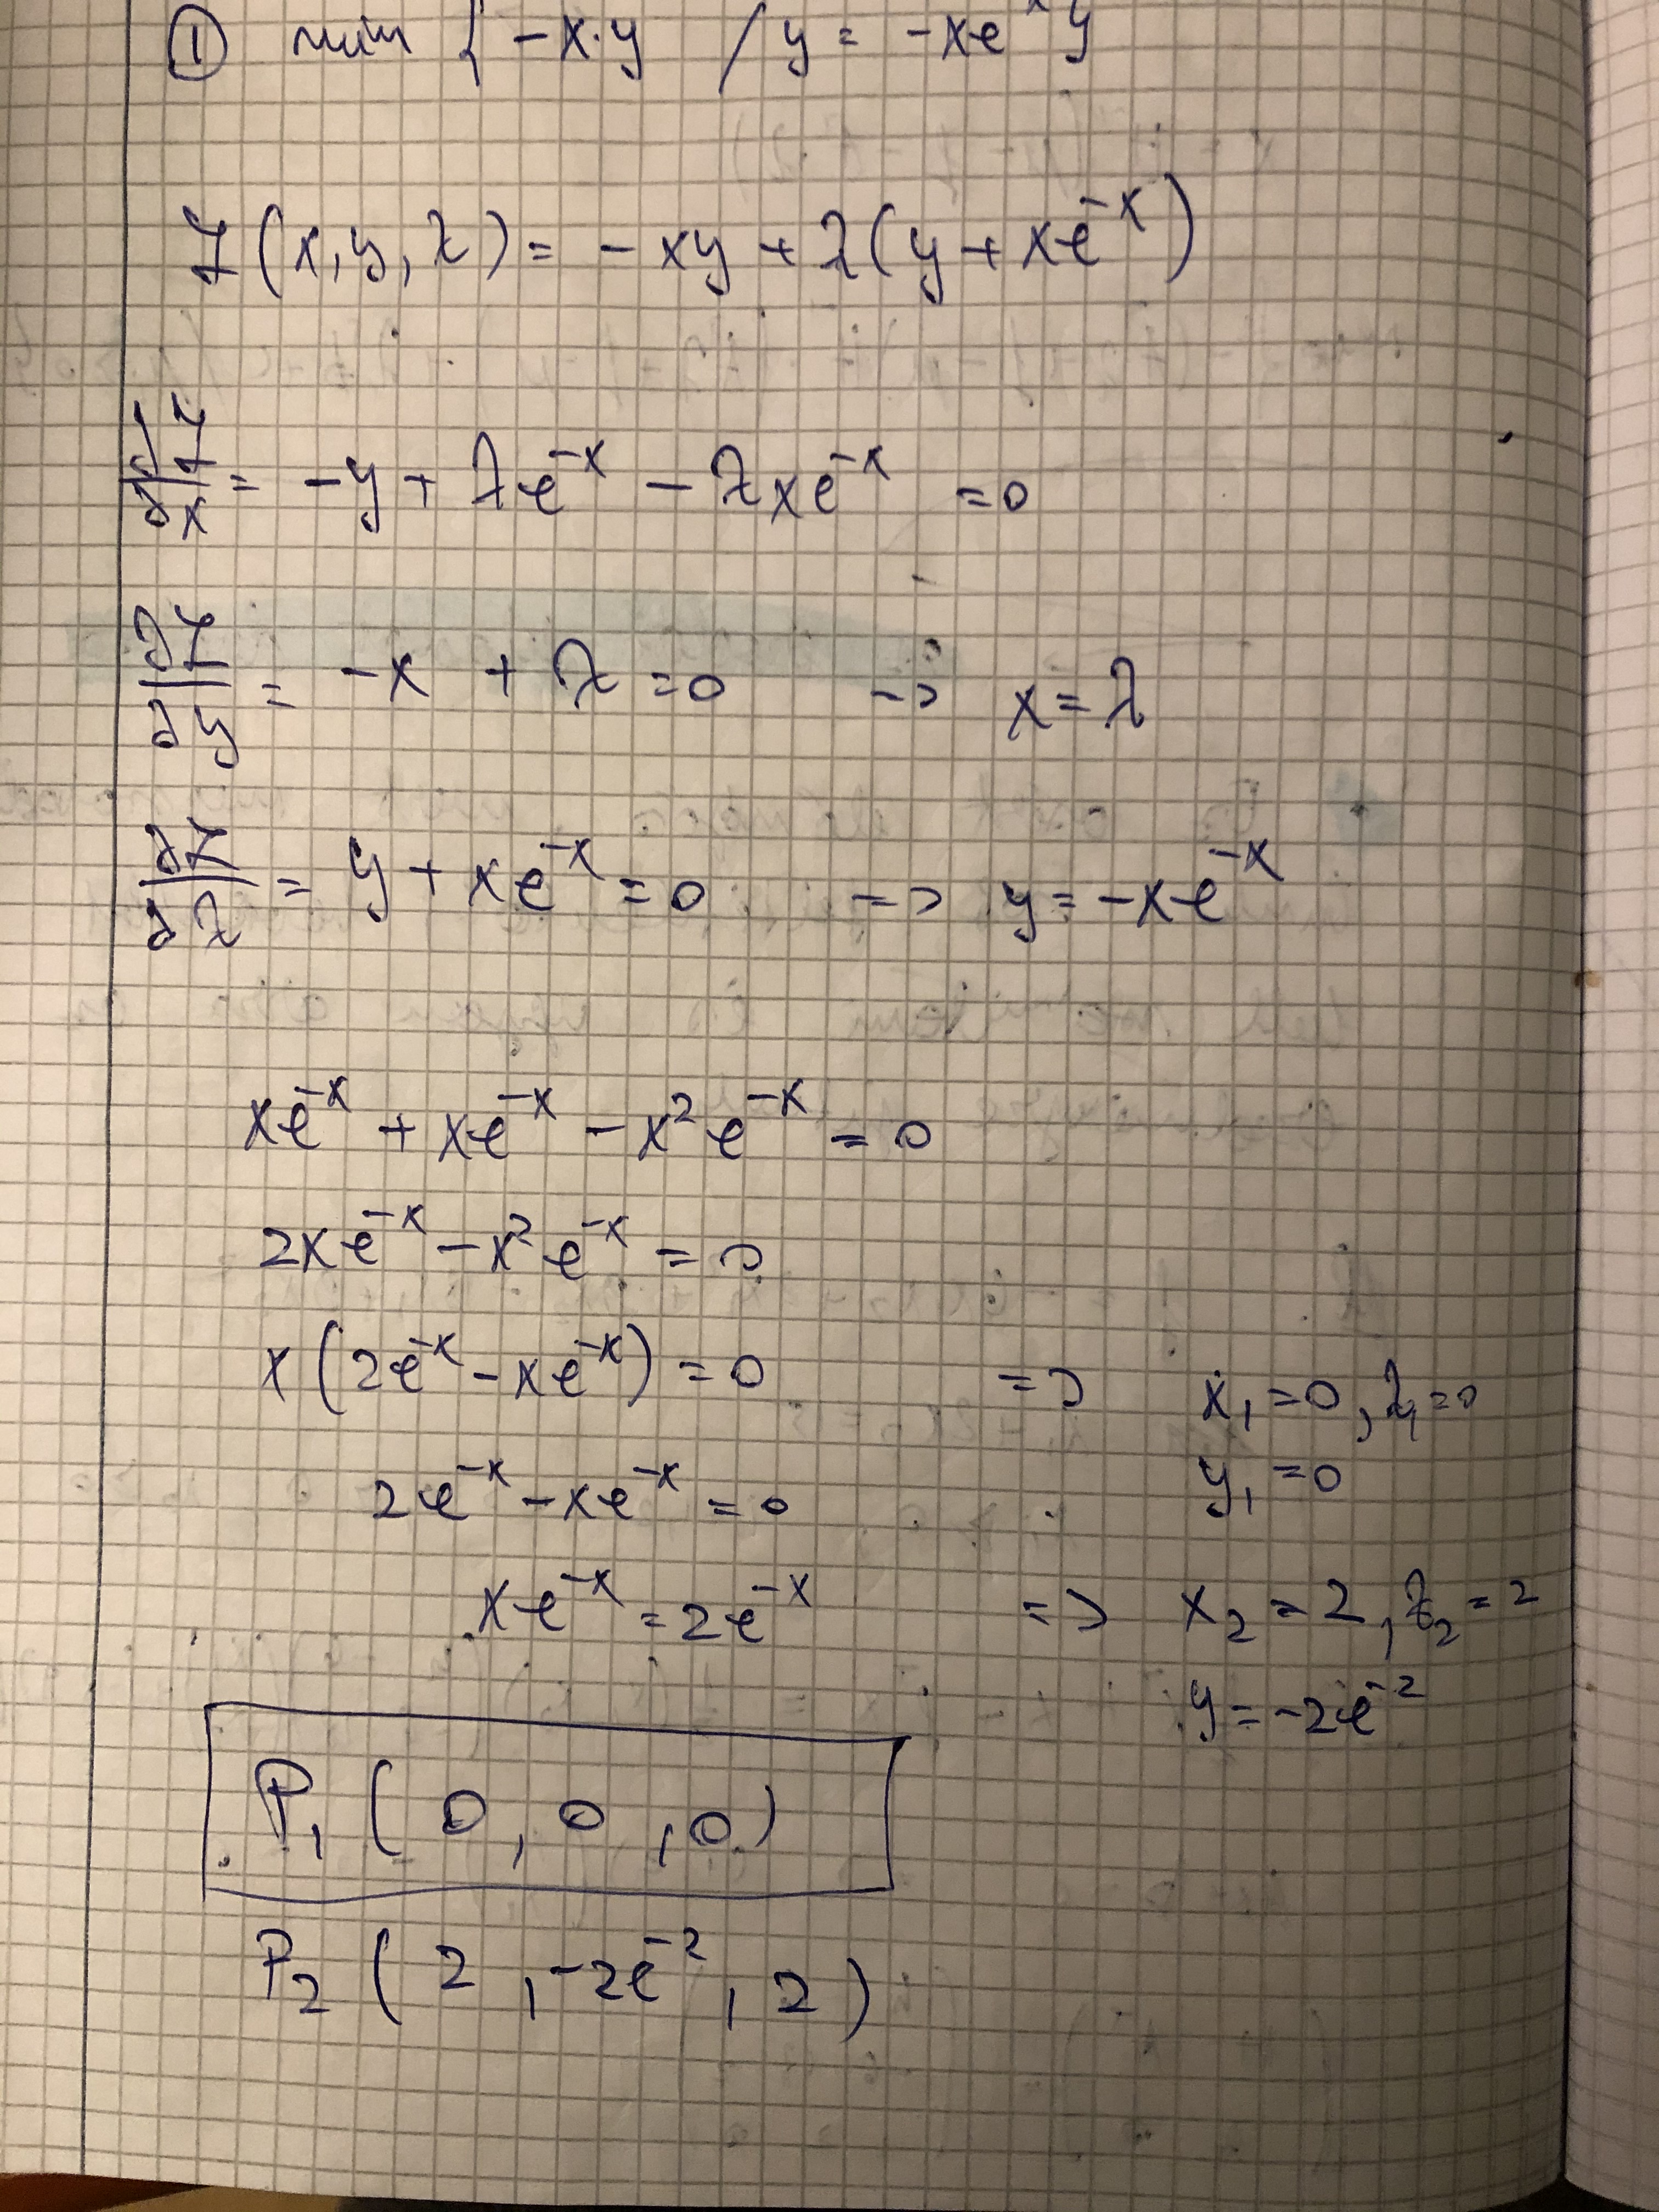 ① min { -x·y / y = -xe^-x }
L(x,y,λ) = -xy + λ(y + xe^-x)
∂L/∂x = -y + λe^-x - λxe^-x = 0
∂L/∂y = -x + λ = 0 -> x = λ
∂L/∂λ = y + xe^-x = 0 -> y = -xe^-x
xe^-x + xe^-x - x²e^-x = 0
2xe^-x - x²e^-x = 0
x(2e^-x - xe^-x) = 0 => x₁ = 0, λ₁ = 0
y₁ = 0
2e^-x - xe^-x = 0
xe^-x = 2e^-x => x₂ = 2, λ₂ = 2
y = -2e^-2
P₁ (0, 0, 0)
P₂ (2, -2e^-2, 2)